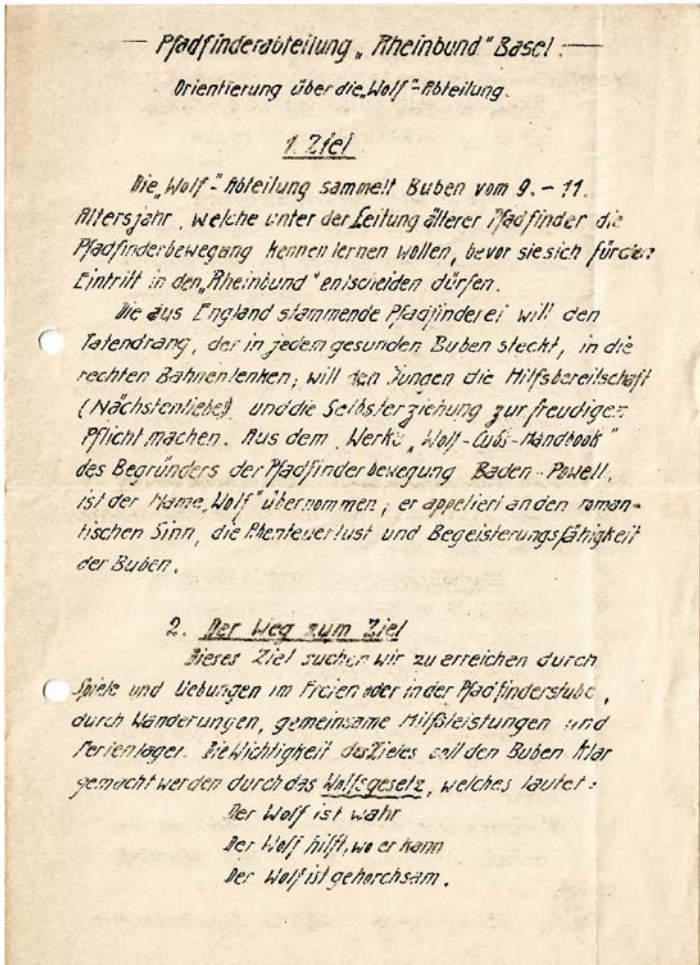 — Pfadfinderabteilung „Rheinbund" Basel. —
Orientierung über die „Wolf"-Abteilung.
1. Ziel
Die „Wolf"-Abteilung sammelt Buben vom 9. - 11.
Altersjahr, welche unter der Leitung älterer Pfadfinder die
Pfadfinderbewegung kennen lernen wollen, bevor sie sich für den
Eintritt in den „Rheinbund" entscheiden dürfen.
Die aus England stammende Pfadfinderei will den
Tatendrang, der in jedem gesunden Buben steckt, in die
rechten Bahnen lenken; will den Jungen die Hilfsbereitschaft
(Nächstenliebe) und die Selbsterziehung zur freudigen
Pflicht machen. Aus dem Werke „Wolf-Cubs-Handbook"
des Begründers der Pfadfinderbewegung Baden-Powell,
ist der Name „Wolf" übernommen; er appeliert an den roman-
tischen Sinn, die Abenteuerlust und Begeisterungsfähigkeit
der Buben.
2. Der Weg zum Ziel
Dieses Ziel suchen wir zu erreichen durch
Spiele und Uebungen im Freien oder in der Pfadfinderstube,
durch Wanderungen, gemeinsame Hilfsleistungen und
Ferienlager. Die Wichtigkeit des Zieles soll den Buben klar
gemacht werden durch das Wolfsgesetz, welches lautet:
Der Wolf ist wahr
Der Wolf hilft, wo er kann
Der Wolf ist gehorchsam.